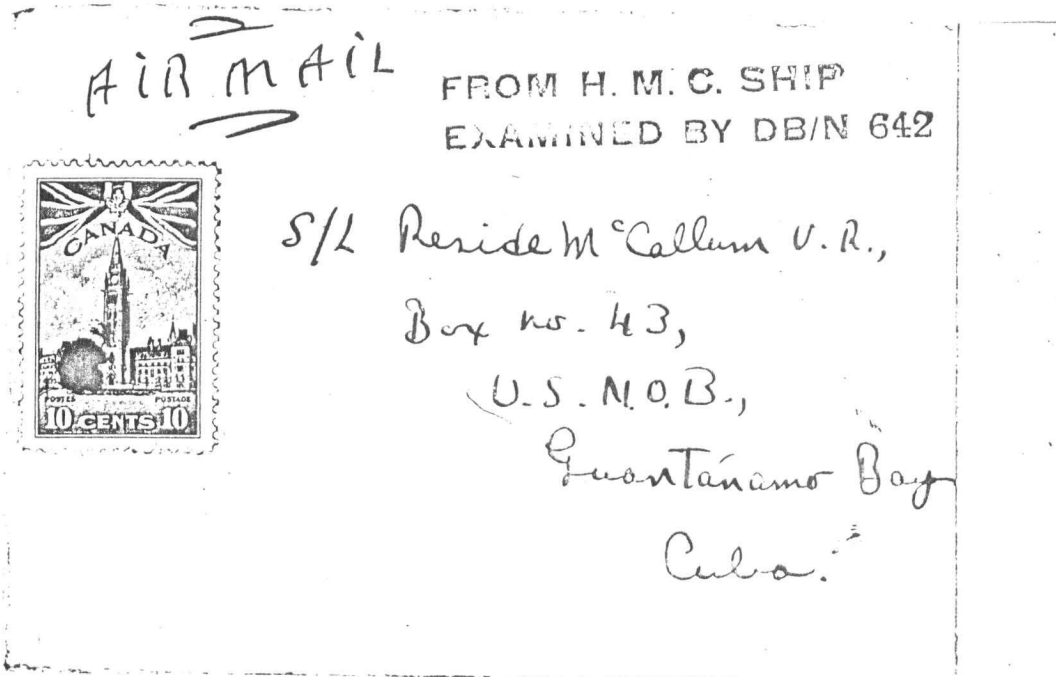 AIR MAIL
FROM H. M. C. SHIP
EXAMINED BY DB/N 642
CANADA
POSTES POSTAGE
10 CENTS 10
S/L McCallum V. R.,
Box no. 43,
U. S. N. O. B.,
Guantánamo Bay
Cuba.